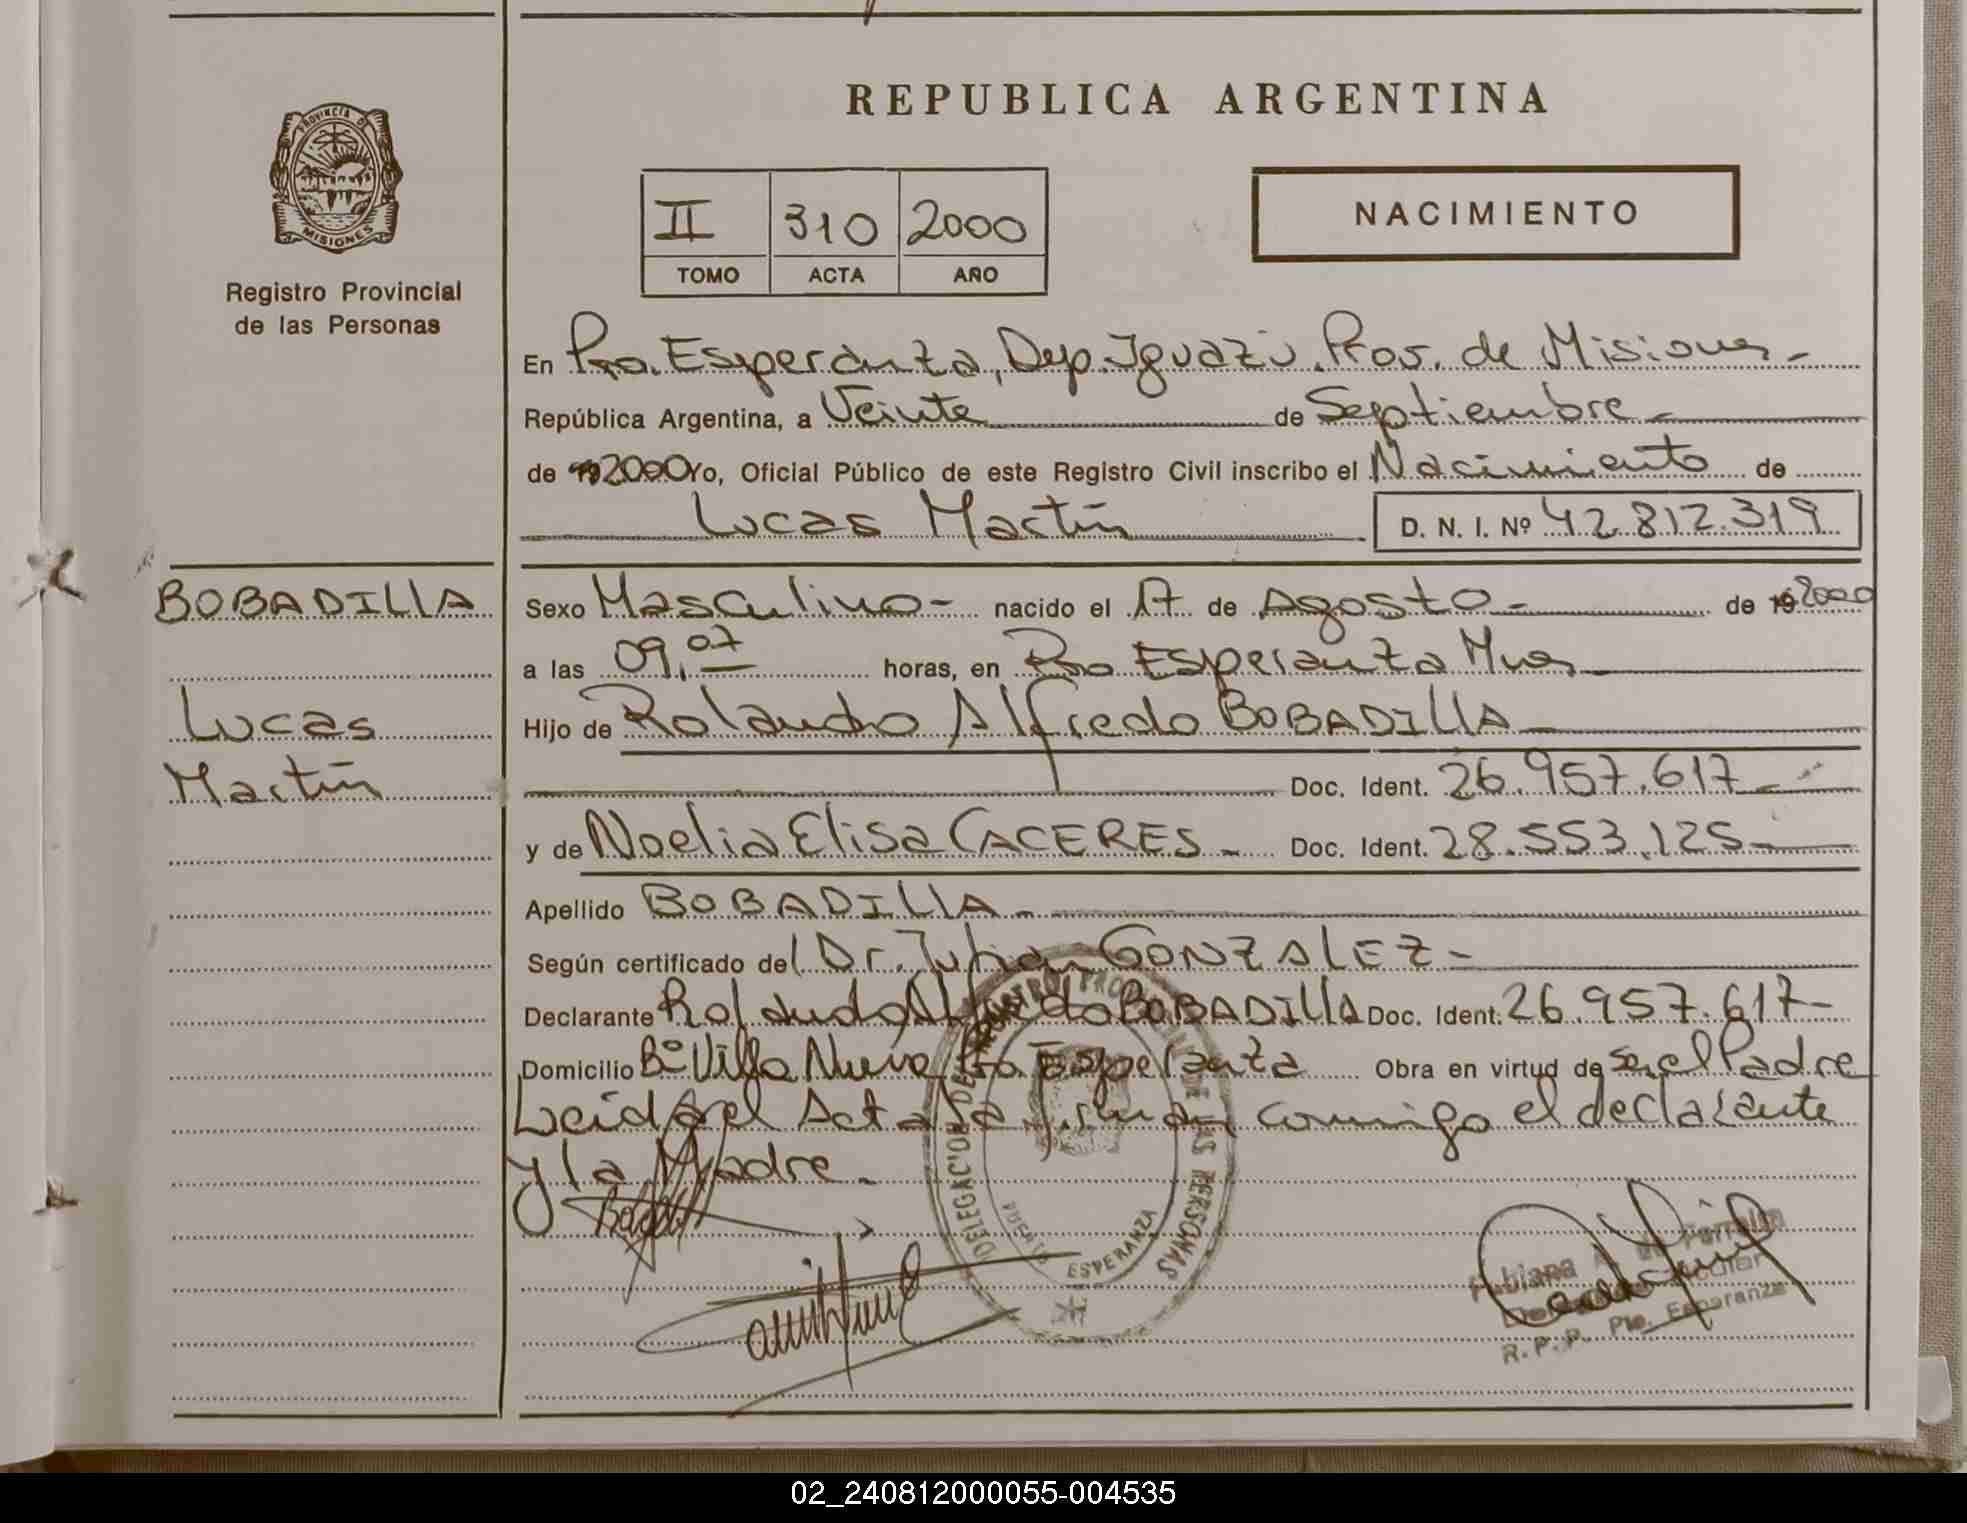 REPUBLICA ARGENTINA
PROVINCIA DE
MISIONES
Registro Provincial
de las Personas
II 310 2000
TOMO ACTA AÑO
NACIMIENTO
En Pto. Esperanza, Dep. Iguazú. Prov. de Misiones-
República Argentina, a Veinte de Septiembre
de 19 2000 Yo, Oficial Público de este Registro Civil inscribo el Nacimiento de
Lucas Martín D. N. I. Nº 42.812.319
BOBADILLA
Lucas
Martín
Sexo Masculino- nacido el 17 de Agosto- de 19 2000
a las 09,07 horas, en Pto Esperanza Mnes
Hijo de Rolando Alfredo BOBADILLA
Doc. Ident. 26.957.617-
y de Noelia Elisa CACERES- Doc. Ident. 28.553.125-
Apellido BOBADILLA-
Según certificado del Dr. Julian GONZALEZ-
Declarante Rolando Alfredo BOBADILLA Doc. Ident. 26.957.617-
Domicilio Bº Villa Nueva Pto Esperanza Obra en virtud de ser el Padre
Leida el Acta la firman conmigo el declarante
y la Madre.-
DELEGACION DEL REGISTRO DE LAS PERSONAS
PUERTO ESPERANZA
Fabiana
R.P.P. Pto. Esperanza
02_240812000055-004535